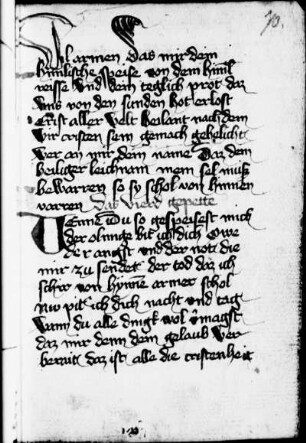 70.
armen das mir dem
himlische speise von dem himel
reisse vnd dein teglich prot daz
vns von den sunden hot erlost
Crist aller welt heilant nach dem
wir cristen sein gemach geheilicht
Wer an mir dein name Daz dein
heiliger leichnam mein sel muß
bewarren so sy schol von hynnen
varren Daz vierd gepette
Du so gespeisest mich
der bit ich dich Owe
der angst vnd der not die
mir zu sendet der tod daz ich
schir von hynnen armer schol
Nu pit ich dich nacht vnd tag
Wann du alle dingk wol vmagst
daz mir denn dein gelaub Wer
bereitt daz ist alle die cristenheit